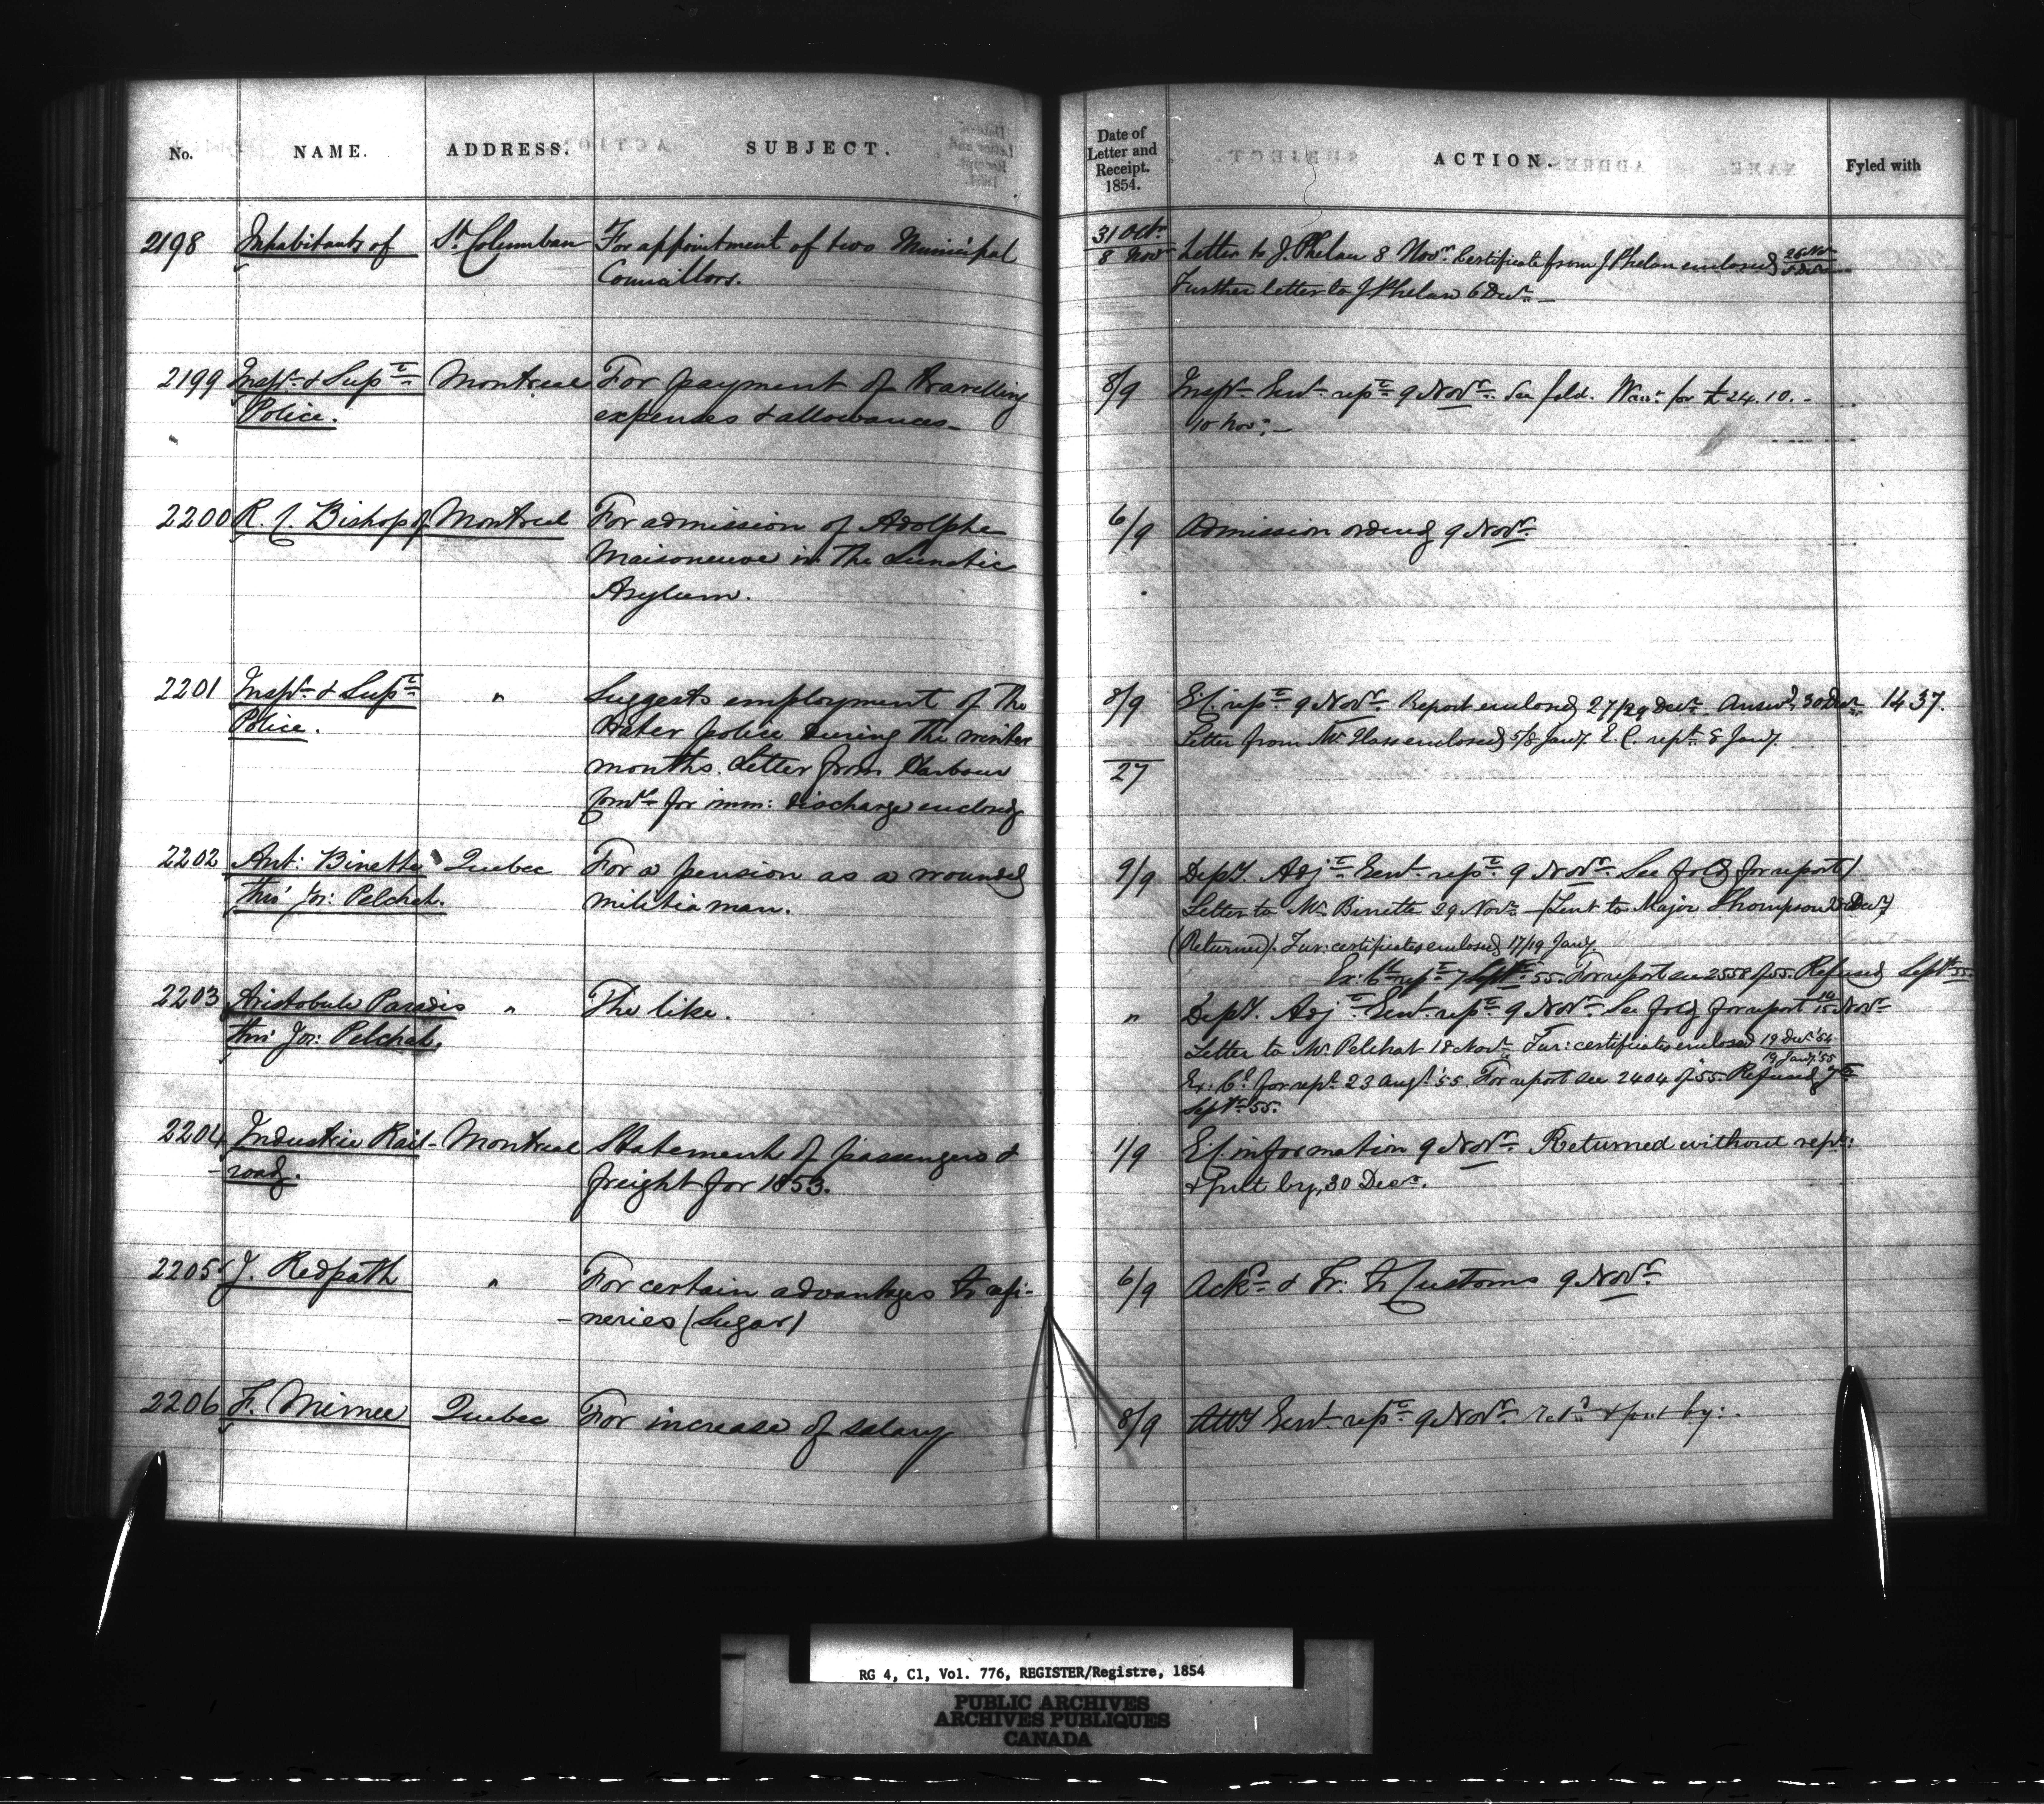 No. NAME. ADDRESS. SUBJECT.
Date of Letter and Receipt. 1854. ACTION. Fyled with
2198 Inhabitants of St. Columban For appointment of two Municipal
Councillors.
31 Octr.
8 Novr Letter to J. Phelan 8 Novr. Certificate from J. Phelan enclosed 26 Nov
Further letter to J. Phelan 6 Decr.
2199 Inspr. & Supt. Montreal For payment of travelling
Police. expenses & allowances
8/9 Inspr. Genl. rept. 9 Novr. See fold. Warr. for £24.10.-
10 Novr.
2200 R. C. Bishop of Montreal For admission of Adolphe
Maisoneuve in the Lunatic
Asylum.
6/9 Admission ordered 9 Novr.
2201 Inspr. & Supt. " Suggests employment of the
Police. Water police during the winter
months. Letter from Harbour
Comrs. for imm: discharge enclosed
8/9 E.C. rept. 9 Novr. Report enclosed 27/29 Decr. Answd. 30 Decr. 1437.
Letter from Mr. Glass enclosed 5/8 Jany. E.C. rept. 8 Jany.
27
2202 Ant: Binette Quebec For a pension as a wounded
thro' Jos: Pelchat. militia man.
9/9 Depy. Adjt. Genl. rept. 9 Novr. See fold for report
Letter to Mr. Binette 29 Novr. (Sent to Major Thompson Decr.)
(Returned). Fur: certificates enclosed 17/19 Jany.
Ex: Cl. rept. 7 Septr. 55. For report see 2558 of 55. Refused Septr. 55.
2203 Aristobule Paradis " The like.
thro' Jos: Pelchat.
" Depy. Adjt. Genl. rept. 9 Novr. See fold for report 14/15 Novr
Letter to Mr. Pelchat 18 Novr. Fur: certificates enclosed 19 Decr. '54
19 Jany. '55
Ex: Cl. for rept. 23 Augt. '55. For report see 2404 of 55. Refused 7th
Septr. 55.
2204 Industrie Rail- Montreal Statement of passengers &
-road. freight for 1853.
1/9 E.C. information 9 Novr. Returned without rept:
& put by, 30 Decr.
2205 J. Redpath " For certain advantages to refi-
-neries (Sugar)
6/9 Ackd. & Tr. to Customs 9 Novr.
2206 F. Mimee Quebec For increase of salary
8/9 Atty Genl. rept. 9 Novr. Retd. & put by.
RG 4, C1, Vol. 776, REGISTER/Registre, 1854
PUBLIC ARCHIVES
ARCHIVES PUBLIQUES
CANADA